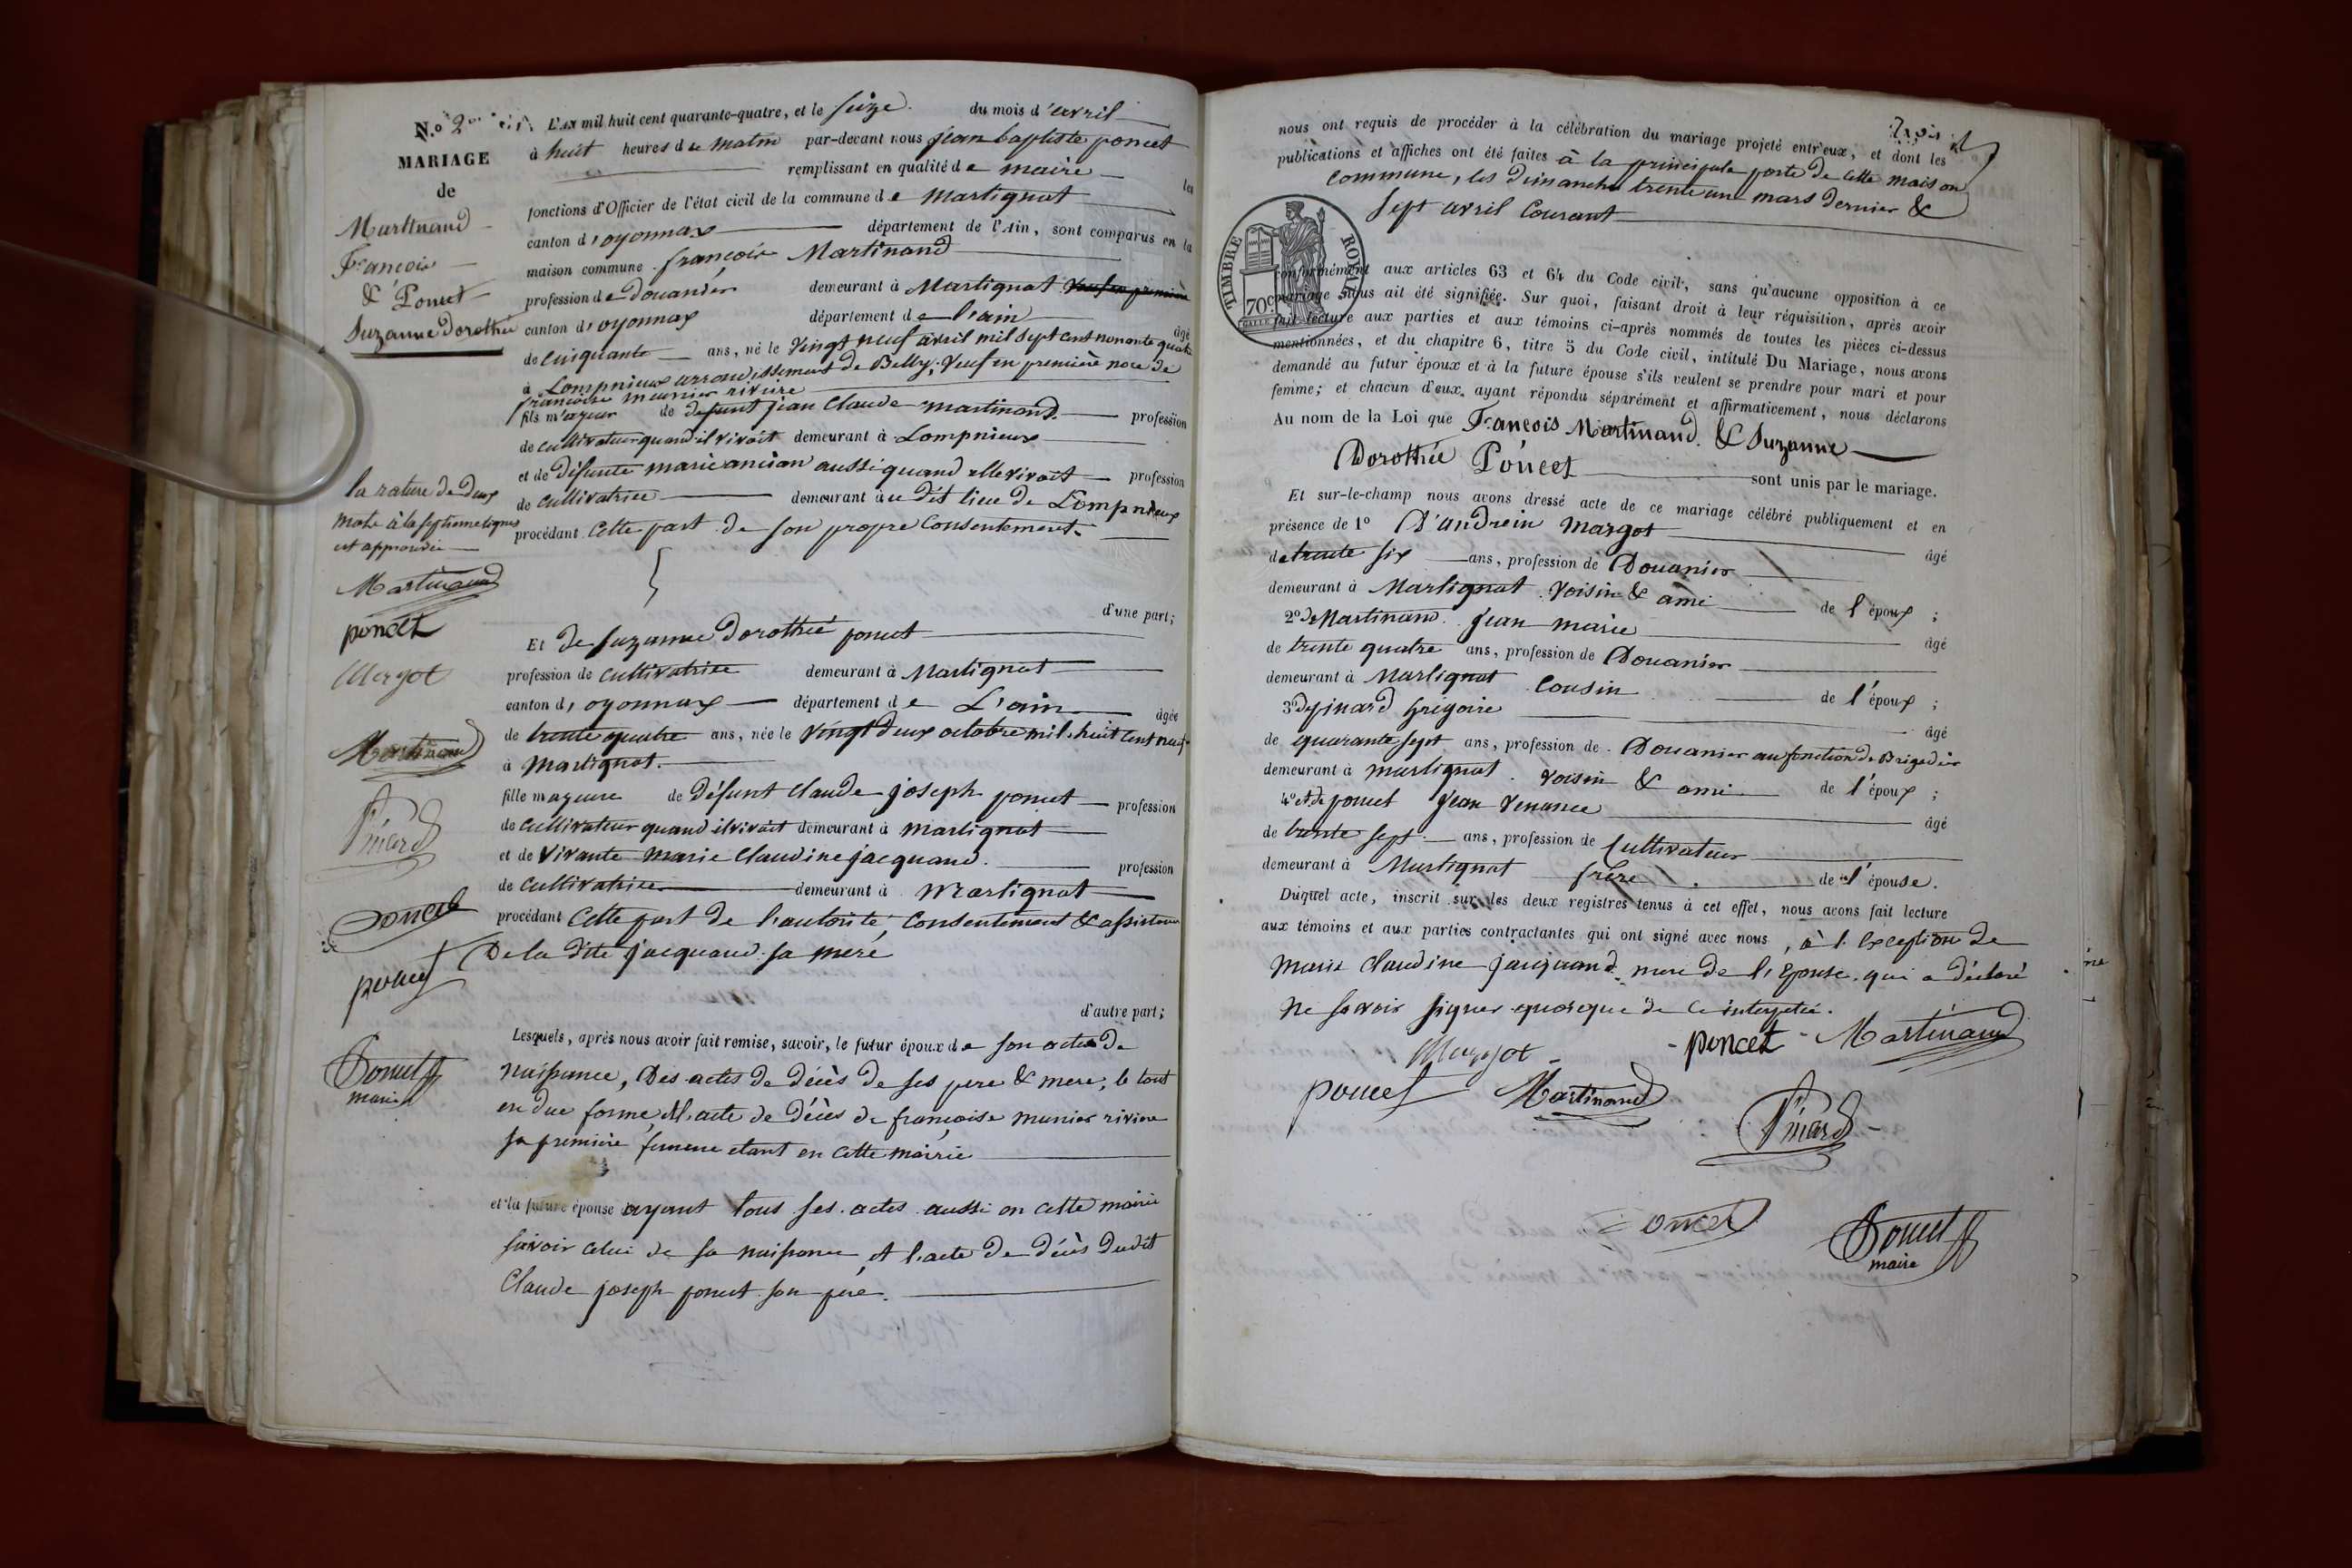 N.º 2
MARIAGE
de
Martinand
François
& Poncet
Suzanne Dorothée
la rature de deux
mots à la septieme lignes
est approuvée
Martinand
poncet
Margot
Martinand
Pinard
Poncet
poncet
Poncet
maire
L'AN mil huit cent quarante-quatre, et le seize du mois d'avril
à huit heures du matin par-devant nous jean baptiste poncet
remplissant en qualité de maire les
fonctions d'Officier de l'état civil de la commune de Martignat
canton d'oyonnax département de l'Ain, sont comparus en la
maison commune françois Martinand
profession de douanier demeurant à Martignat veuf en première
canton d'oyonnax département de l'ain âgé
de cinquante ans, né le vingt neuf avril mil sept cent nonante quatre
à Lompnieux arrondissement de Belly, veuf en première noce de
françoise meunier rivière
fils mageur de defunt jean Claude martinand profession
de cultivateur quand il vivoit demeurant à Lompnieux
et de défunte marie ancian aussi quand elle vivoit profession
de cultivatrice demeurant au dit lieu de Lompnieux
procédant cette part de son propre Consentement
d'une part;
ET de suzanne dorothée poncet
profession de cultivatrice demeurant à Martignat
canton d'oyonnax département de L'ain âgée
de trente quatre ans, née le vingt deux octobre mil huit cent neuf
à Martignat.
fille mageure de défunt Claude joseph poncet profession
de cultivateur quand il vivoit demeurant à martignat
et de vivante marie Claudine jacquand profession
de cultivatrice demeurant à martignat
procédant cette part de l'autorité, Consentement & assistance
De la dite jacquand sa mere
d'autre part;
Lesquels, après nous avoir fait remise, savoir, le futur époux de son acte de
naissance, Des actes de décès de ses pere & mere, le tout
en due forme, et l'acte de décès de françoise munier riviere
sa premiere femme etant en cette mairie
et la future épouse ayant tous ses actes aussi en cette mairie
savoir celui de sa naissance et l'acte de décès dudit
Claude joseph poncet son père.
trois
nous ont requis de procéder à la célébration du mariage projeté entr'eux, et dont les
publications et affiches ont été faites à la principale porte de cette maison
commune, les dimanche trente un mars dernier &
sept avril Courant
TIMBRE ROYAL
70 c
conformément aux articles 63 et 64 du Code civil, sans qu'aucune opposition à ce
mariage nous ait été signifiée. Sur quoi, faisant droit à leur réquisition, après avoir
fait lecture aux parties et aux témoins ci-après nommés de toutes les pièces ci-dessus
mentionnées, et du chapitre 6, titre 5 du Code civil, intitulé Du Mariage, nous avons
demandé au futur époux et à la future épouse s'ils veulent se prendre pour mari et pour
femme; et chacun d'eux, ayant répondu séparément et affirmativement, nous déclarons
Au nom de la Loi que François Martinand & Suzanne
Dorothée Poncet sont unis par le mariage.
Et sur-le-champ nous avons dressé acte de ce mariage célébré publiquement et en
présence de 1º D'andrein Margot âgé
de trente six ans, profession de Douanier
demeurant à Martignat voisin & ami de l'époux;
2º de Martinand jean marie âgé
de trente quatre ans, profession de Douanier
demeurant à Martignat Cousin de l'époux;
3º de pinard Grégoire âgé
de quarante sept ans, profession de Douanier au fonction de Brigadier
demeurant à martignat voisin & ami de l'époux;
4º et de poncet jean venance âgé
de trente sept ans, profession de Cultivateur
demeurant à Martignat frère de l'épouse.
Duquel acte, inscrit sur les deux registres tenus à cet effet, nous avons fait lecture
aux témoins et aux parties contractantes qui ont signé avec nous, à l'exception de
Marie Claudine jacquand mere de l'épouse qui a déclaré
ne savoir signer quoique de ce interpelée.
Margot poncet Martinand
poncet Martinand
Pinard
Poncet
Poncet
maire